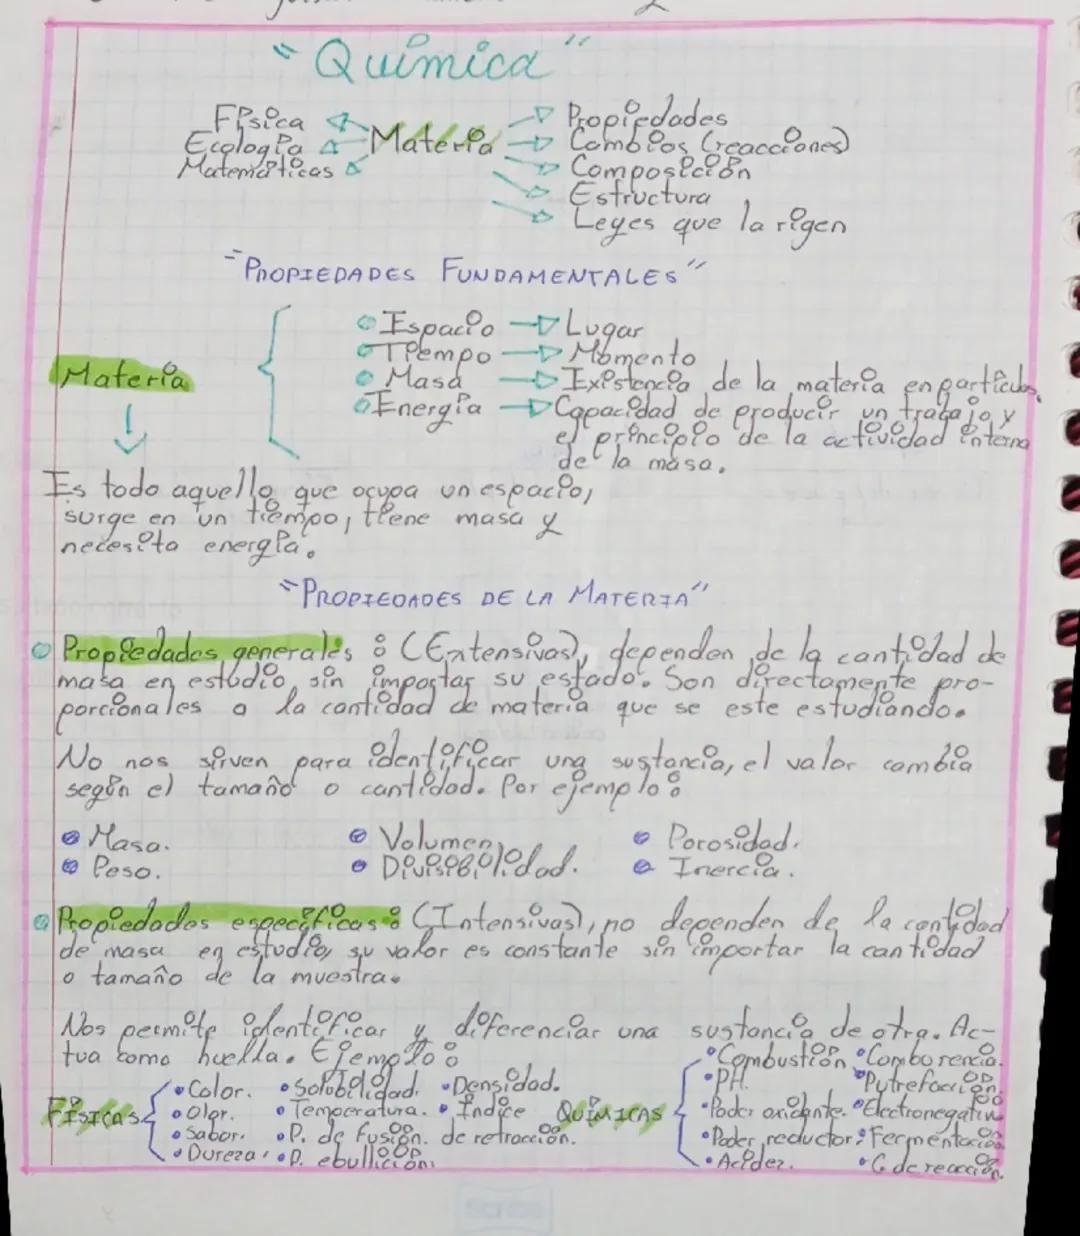 "Química"
Física
Ecología
Matemáticas
Materia
Propiedades
Cambios (reacciones)
Composición
Estructura
Leyes que la rigen
"PROPIEDADES FUNDAMENTALES"
Materia
Espacio → Lugar
Tiempo → Momento
Masa → Existencia de la materia en partículas.
Energía → Capacidad de producir un trabajo y
el principio de la actividad interna
de la masa.
Es todo aquello que ocupa un espacio,
surge en un tiempo, tiene masa y
necesita energía.
"PROPIEDADES DE LA MATERIA"
Propiedades generales: (Extensivas), dependen de la cantidad de
masa en estudio sin importar su estado. Son directamente pro-
porcionales a la cantidad de materia que se este estudiando.
No nos sirven para identificar una sustancia, el valor cambia
según el tamaño o cantidad. Por ejemplo:
Masa. Volumen. Porosidad.
Peso. Divisibilidad. Inercia.
Propiedades específicas: (Intensivas), no dependen de la cantidad
de masa en estudio, su valor es constante sin importar la cantidad
o tamaño de la muestra.
Nos permite identificar y diferenciar una sustancia de otra. Ac-
tua como huella. Ejemplo:
FÍSICAS
Color. Solubilidad. Densidad.
Olor. Temperatura. Índice
Sabor. P. de fusión. de refracción.
Dureza. P. ebullición.
QUÍMICAS
Combustión Comborencia.
PH. Putrefacción.
Poder oxidante. Electronegativi
Poder reductor. Fermentación
Acidez. C. de reacción.